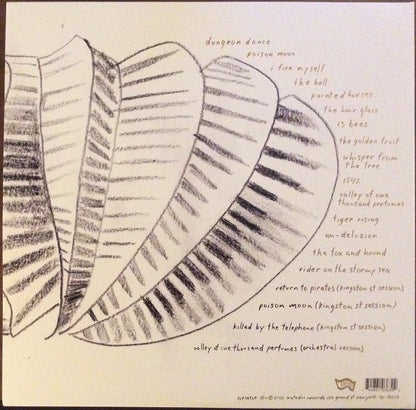 dungeon dance
poison moon
i fire myself
the bell
painted horses
the hour glass
13 bees
the golden fruit
whisper from
the tree
1592
valley of one
thousand perfumes
tiger rising
au-deluzion
the fox and hound
rider on the stormy sea
return to pirates (kingston st session)
poison moon (kingston st session)
killed by the telephone (kingston st session)
valley of one thousand perfumes (orchestral version)
matador records